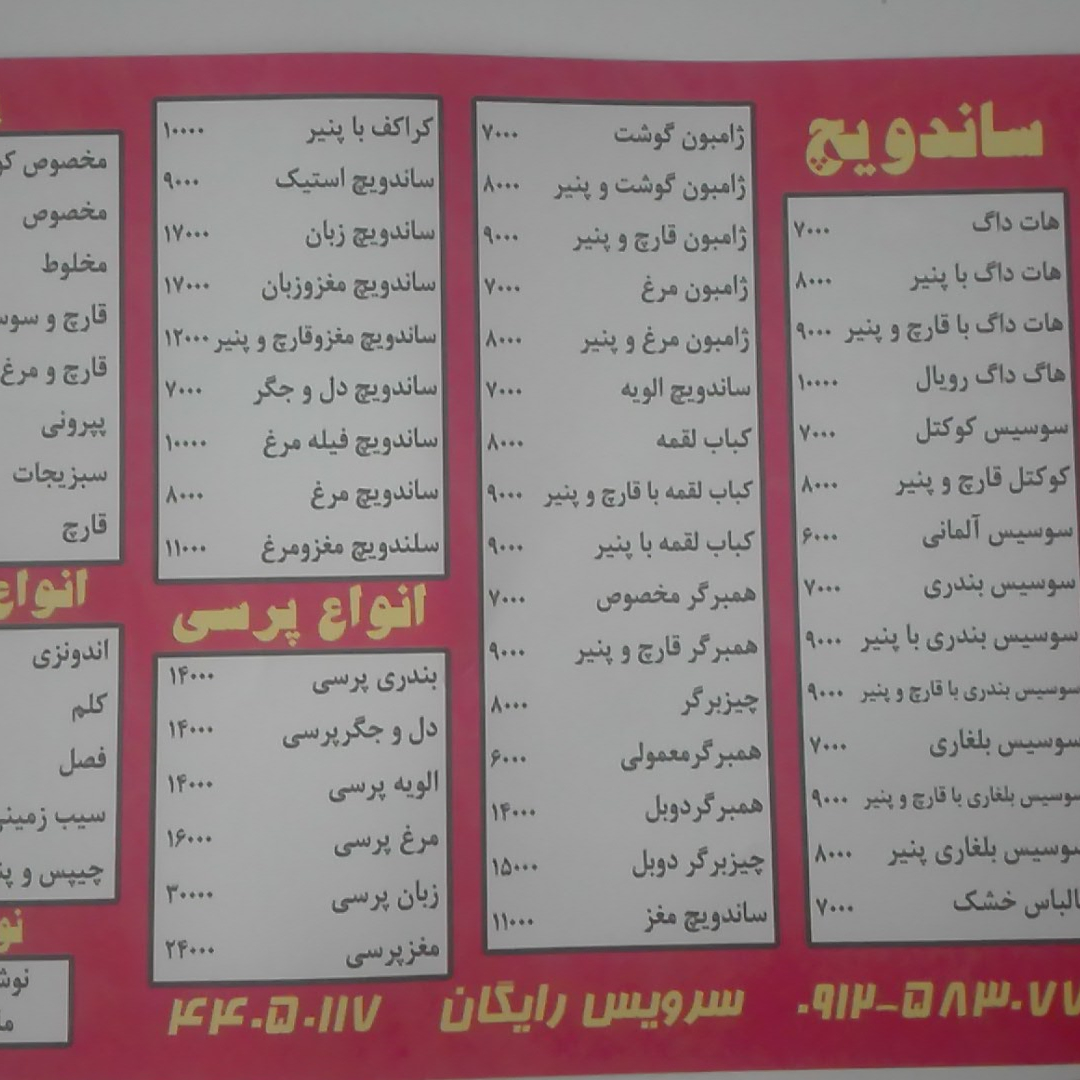 ساندویچ
هات داگ ۷۰۰۰
هات داگ با پنیر ۸۰۰۰
هات داگ با قارچ و پنیر ۹۰۰۰
هاگ داگ رویال ۱۰۰۰۰
سوسیس کوکتل ۷۰۰۰
کوکتل قارچ و پنیر ۸۰۰۰
سوسیس آلمانی ۶۰۰۰
سوسیس بندری ۷۰۰۰
سوسیس بندری با پنیر ۹۰۰۰
سوسیس بندری با قارچ و پنیر ۹۰۰۰
سوسیس بلغاری ۷۰۰۰
سوسیس بلغاری با قارچ و پنیر ۹۰۰۰
سوسیس بلغاری پنیر ۸۰۰۰
کالباس خشک ۷۰۰۰
ژامبون گوشت ۷۰۰۰
ژامبون گوشت و پنیر ۸۰۰۰
ژامبون قارچ و پنیر ۹۰۰۰
ژامبون مرغ ۷۰۰۰
ژامبون مرغ و پنیر ۸۰۰۰
ساندویچ الویه ۷۰۰۰
کباب لقمه ۸۰۰۰
کباب لقمه با قارچ و پنیر ۹۰۰۰
کباب لقمه با پنیر ۹۰۰۰
همبرگر مخصوص ۷۰۰۰
همبرگر قارچ و پنیر ۹۰۰۰
چیزبرگر ۸۰۰۰
همبرگرمعمولی ۶۰۰۰
همبرگردوبل ۱۴۰۰۰
چیزبرگر دوبل ۱۵۰۰۰
ساندویچ مغز ۱۱۰۰۰
کراکف با پنیر ۱۰۰۰۰
ساندویچ استیک ۹۰۰۰
ساندویچ زبان ۱۷۰۰۰
ساندویچ مغزوزبان ۱۷۰۰۰
ساندویچ مغزوقارچ و پنیر ۱۲۰۰۰
ساندویچ دل و جگر ۷۰۰۰
ساندویچ فیله مرغ ۱۰۰۰۰
ساندویچ مرغ ۸۰۰۰
سلندویچ مغزومرغ ۱۱۰۰۰
انواع پرسی
بندری پرسی ۱۴۰۰۰
دل و جگرپرسی ۱۴۰۰۰
الویه پرسی ۱۴۰۰۰
مرغ پرسی ۱۶۰۰۰
زبان پرسی ۳۰۰۰۰
مغزپرسی ۲۴۰۰۰
مخصوص
مخصوص
مخلوط
قارچ و
قارچ و مرغ
پپرونی
سبزیجات
قارچ
انواع
اندونزی
کلم
فصل
سیب زمینی
چیپس و
۰۹۱۲-۵۸۳۰۷۷
سرویس رایگان
۴۴۰۵۰۱۱۷